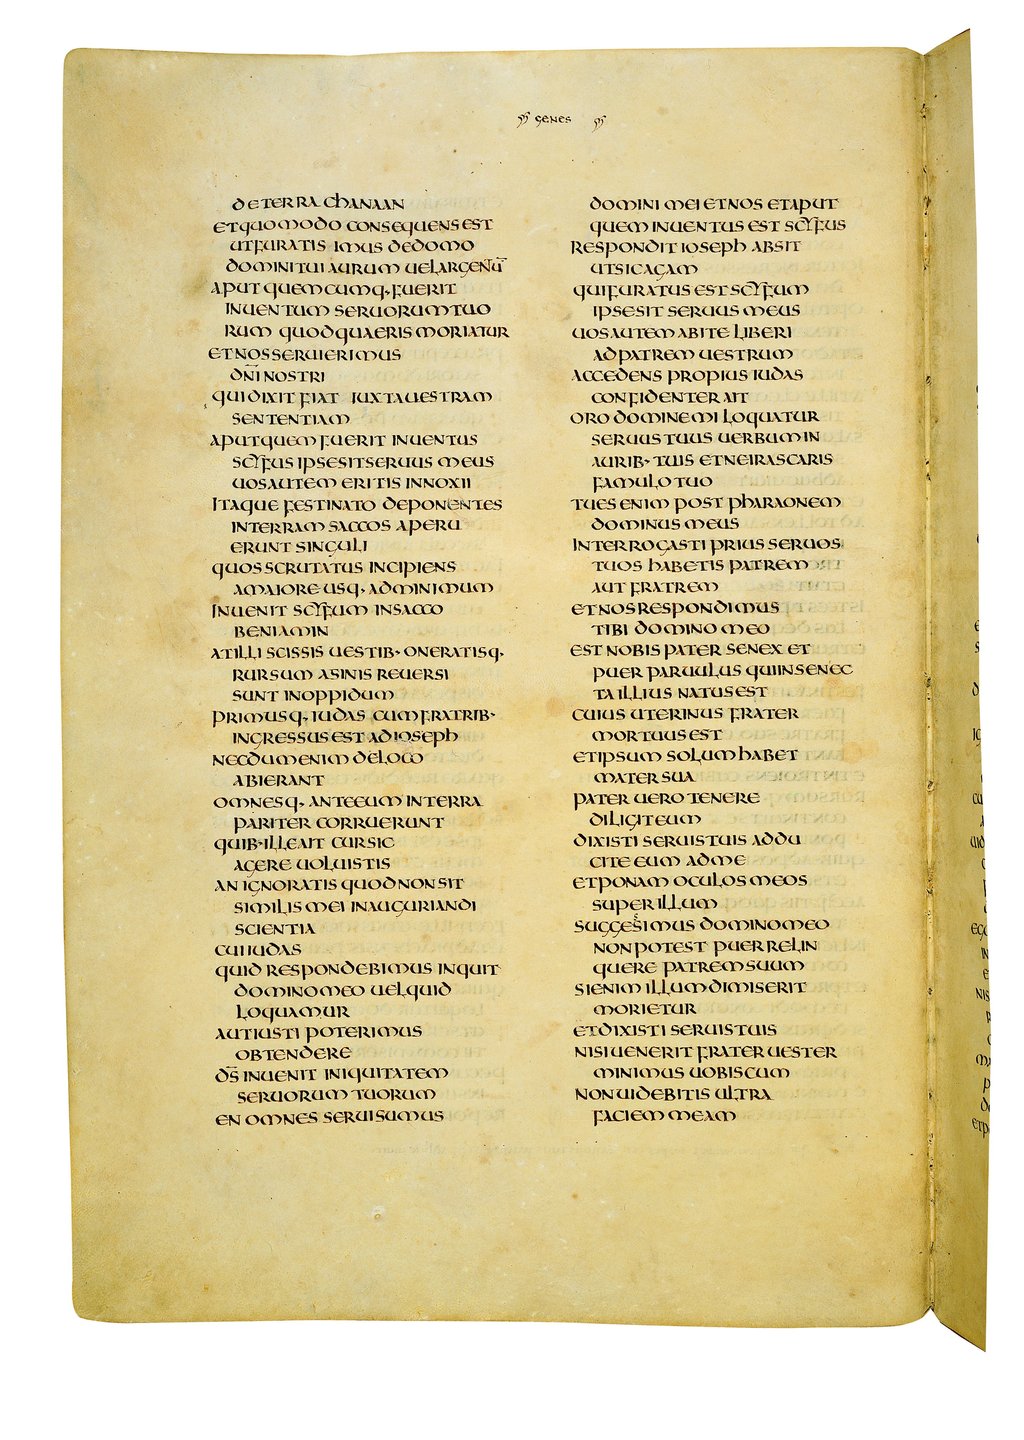 genes
de terra chanaan
et quomodo consequens est
ut furatis imus de domo
domini tui aurum uel argentū
aput quemcumq· fuerit
inuentum seruorum tuo
rum quod quaeris moriatur
et nos seruierimus
dn̄i nostri
qui dixit fiat iuxta uestram
sententiam
aput quem fuerit inuentus
scyfus ipse sit seruus meus
uos autem eritis innoxii
itaque festinato deponentes
in terram saccos aperu
erunt singuli
quos scrutatus incipiens
a maiore usq· ad minimum
inuenit scyfum in sacco
beniamin
at illi scissis uestib· oneratisq·
rursum asinis reuersi
sunt in oppidum
primusq· iudas cum fratrib·
ingressus est ad ioseph
necdum enim de loco
abierant
omnesq· ante eum in terra
pariter corruerunt
quib· ille ait cur sic
agere uoluistis
an ignoratis quod non sit
similis mei in auguriandi
scientia
cui iudas
quid respondebimus inquit
domino meo uel quid
loquamur
aut iusti poterimus
obtendere
ds̄ inuenit iniquitatem
seruorum tuorum
en omnes serui sumus
domini mei et nos et aput
quem inuentus est scyfus
respondit ioseph absit
ut sic agam
qui furatus est scyfum
ipse sit seruus meus
uos autem abite liberi
ad patrem uestrum
accedens propius iudas
confidenter ait
oro domine mi loquatur
seruus tuus uerbum in
aurib· tuis et ne irascaris
famulo tuo
tu es enim post pharaonem
dominus meus
interrogasti prius seruos
tuos habetis patrem
aut fratrem
et nos respondimus
tibi domino meo
est nobis pater senex et
puer paruulus qui in senec
ta illius natus est
cuius uterinus frater
mortuus est
et ipsum solum habet
mater sua
pater uero tenere
diligit eum
dixisti seruis tuis addu
cite eum ad me
et ponam oculos meos
super illum
suggessimus domino meo
non potest puer relin
quere patrem suum
si enim illum dimiserit
morietur
et dixisti seruis tuis
nisi uenerit frater uester
minimus uobiscum
non uidebitis ultra
faciem meam